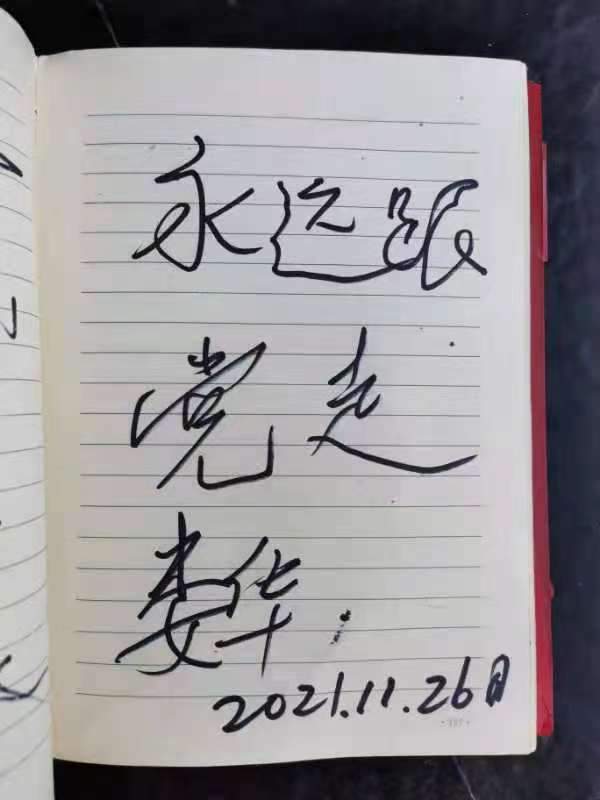 永远跟
党走
娄华
2021.11.26日